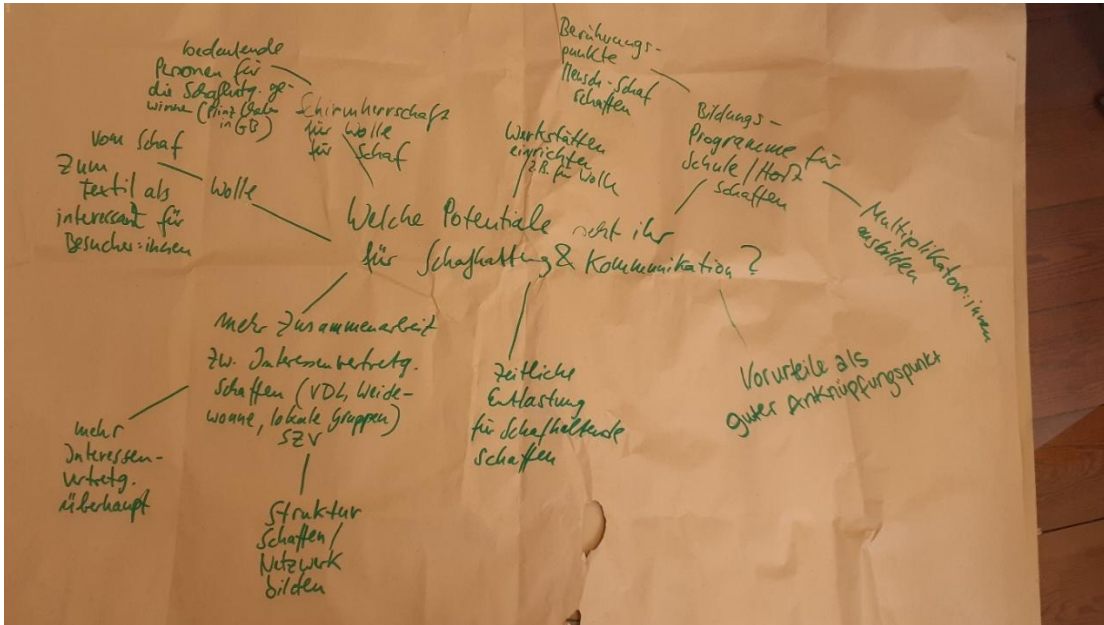 Welche Potentiale seht ihr
für Schafhaltung & Kommunikation?
bedeutende
Personen für
die Schafhtg. ge-
winnen (Prinz
in GB)
Schirmherrschaft
für Wolle
für Schaf
vom Schaf
zum
Textil als
interessant für
Besucher:innen
Wolle
Werkstätten
einrichten
z.B. für Wolle
Berührungs-
punkte
Mensch-Schaf
schaffen
Bildungs-
Programme für
Schule/Hort
schaffen
Multiplikator:innen
ausbilden
Vorurteile als
guter Anknüpfungspunkt
zeitliche
Entlastung
für Schafhaltende
schaffen
mehr Zusammenarbeit
zw. Interessenvertretg.
schaffen (VDL, Weide-
wonne, lokale Gruppen)
SZV
mehr
Interessen-
vertretg.
überhaupt
Struktur
schaffen/
Netzwerk
bilden